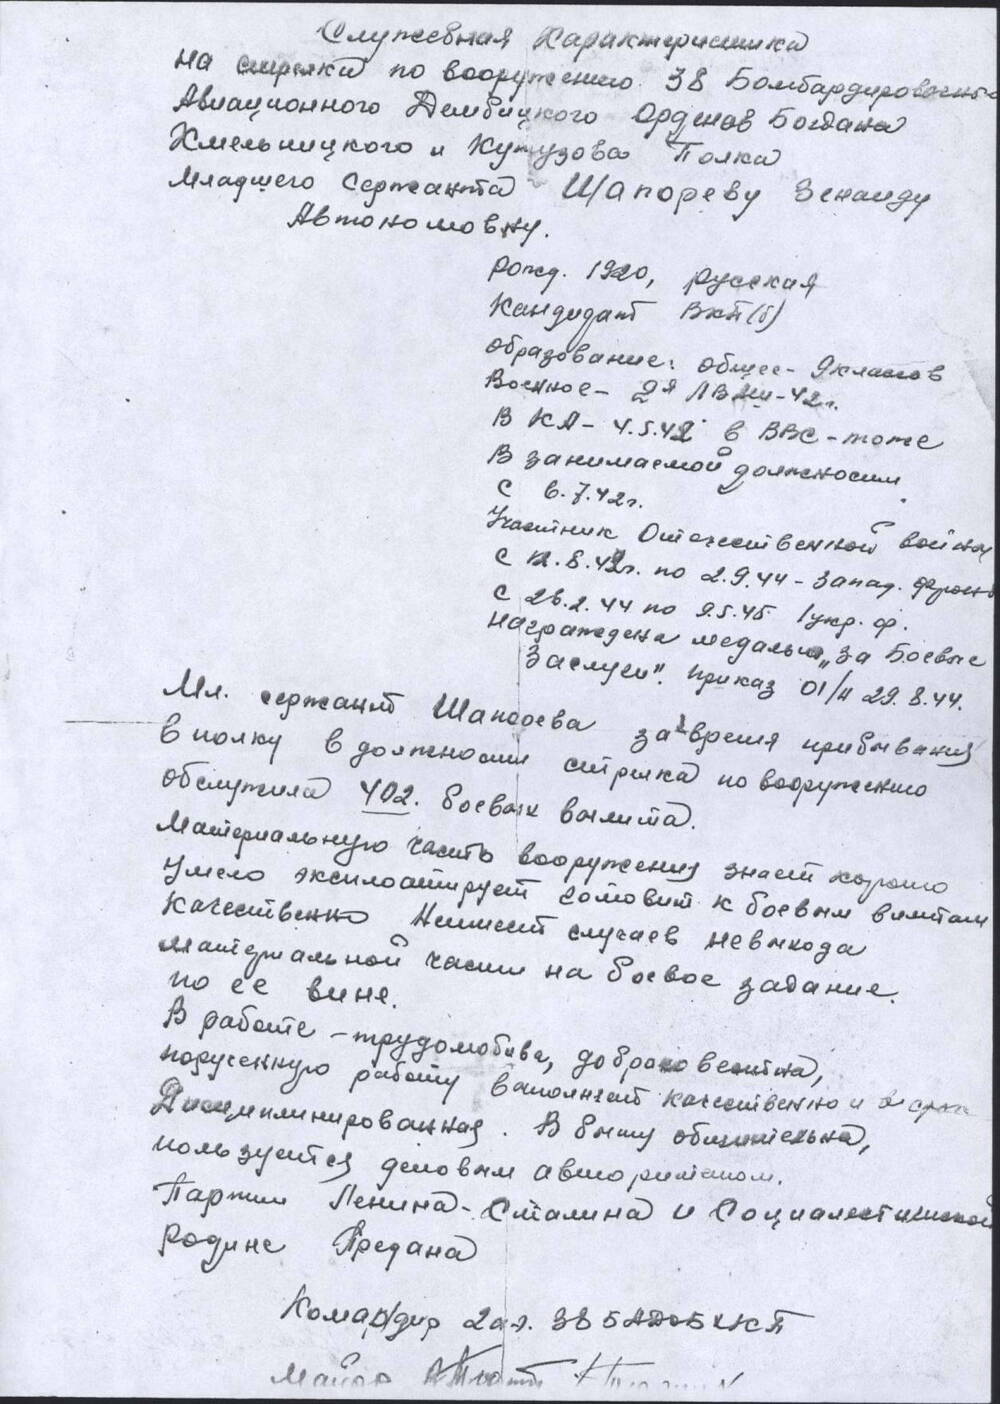 Служебная Характеристика
на стрелка по вооружению 38 Бомбардировочн
Авиационного Дембицкого Орденов Богдана
Хмельницкого и Кутузова Полка
Младшего Сержанта Шапореву Зенаиду
Автономовну.
рожд. 1920, русская
Кандидат ВКП(б)
образование: общее - 9 классов
Военное - 2я ЛВ - 42г.
В КА - 4.5.42 в ВВС - тоже
В занимаемой должности
с 6.7.42г.
Участник Отечественной войны
с 12.8.42г. по 2.9.44 - Запад. фронт
с 26.2.44 по 9.5.45 1 укр. ф.
награждена медалью „За Боевые
Заслуги". приказ 01/н 29.8.44.
Мл. сержант Шапорева за время прибывания
в полку в должности стрелка по вооружению
обслужила 402. боевых вылета.
Материальную часть вооружения знает хорошо
умело эксплоатирует готовит к боевым вылетам
качественно Неимеет случаев невыхода
материальной части на боевое задание.
по ее вине.
В работе - трудолюбива, добросовестна,
порученную работу выполняет качественно и в срок
Дисциплинированная. В быту общительна,
пользуется деловым авторитетом.
Партии Ленина - Сталина и Социалестической
родине Предана
Командир 2 аэ. 38 БАДОБХКП
Майор